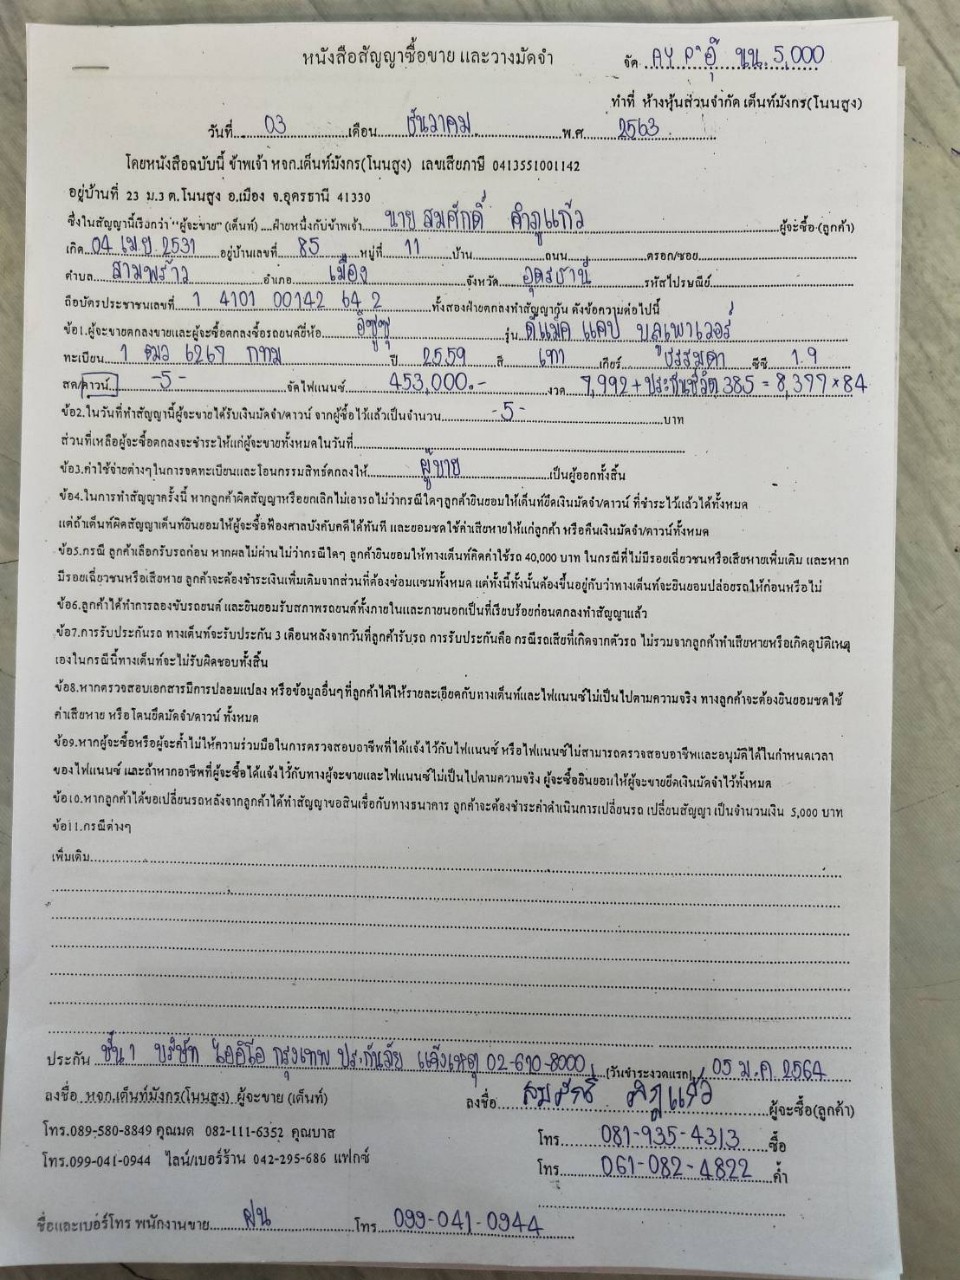 หนังสือสัญญาซื้อขาย และวางมัดจำ
จัด AY P'อุ๊ นน.5,000
ทำที่ ห้างหุ้นส่วนจำกัด เต็นท์มังกร(โนนสูง)
วันที่ 03 เดือน ธันวาคม พ.ศ. 2563
โดยหนังสือฉบับนี้ ข้าพเจ้า หจก.เต็นท์มังกร(โนนสูง) เลขเสียภาษี 0413551001142
อยู่บ้านที่ 23 ม.3 ต.โนนสูง อ.เมือง จ.อุดรธานี 41330
ซึ่งในสัญญานี้เรียกว่า "ผู้จะขาย" (เต็นท์) ....ฝ่ายหนึ่งกับข้าพเจ้า นาย สมศักดิ์ คำภูแก้ว ผู้จะซื้อ (ลูกค้า)
เกิด 04 เม.ย. 2531 อยู่บ้านเลขที่ 85 หมู่ที่ 11 บ้าน ถนน ตรอก/ซอย
ตำบล สามพร้าว อำเภอ เมือง จังหวัด อุดรธานี รหัสไปรษณีย์
ถือบัตรประชาชนเลขที่ 1 4101 00142 64 2 ทั้งสองฝ่ายตกลงทำสัญญากัน ดังข้อความต่อไปนี้
ข้อ1.ผู้จะขายตกลงขายและผู้จะซื้อตกลงซื้อรถยนต์ยี่ห้อ อีซูซุ รุ่น ดีแม็ค แคป บลูเพาเวอร์
ทะเบียน 1 ฒว 6267 กทม ปี 2559 สี เทา เกียร์ ธรรมดา ซีซี 1.9
สด/ดาวน์ -5- จัดไฟแนนซ์ 453,000.- งวด 7,992 + ประกันชีวิต 385 = 8,377 × 84
ข้อ2.ในวันที่ทำสัญญานี้ผู้จะขายได้รับเงินมัดจำ/ดาวน์ จากผู้ซื้อไว้แล้วเป็นจำนวน -5- บาท
ส่วนที่เหลือผู้จะซื้อตกลงจะชำระให้แก่ผู้จะขายทั้งหมดในวันที่
ข้อ3.ค่าใช้จ่ายต่างๆในการจดทะเบียนและโอนกรรมสิทธ์ตกลงให้ ผู้ขาย เป็นผู้ออกทั้งสิ้น
ข้อ4.ในการทำสัญญาครั้งนี้ หากลูกค้าผิดสัญญาหรือยกเลิกไม่เอารถไม่ว่ากรณีใดๆลูกค้ายินยอมให้เต็นท์ยึดเงินมัดจำ/ดาวน์ ที่ชำระไว้แล้วได้ทั้งหมด
แต่ถ้าเต็นท์ผิดสัญญาเต็นท์ยินยอมให้ผู้จะซื้อฟ้องศาลบังคับคดีได้ทันที และยอมชดใช้ค่าเสียหายให้แก่ลูกค้า หรือคืนเงินมัดจำ/ดาวน์ทั้งหมด
ข้อ5.กรณี ลูกค้าเลือกรับรถก่อน หากผลไม่ผ่านไม่ว่ากรณีใดๆ ลูกค้ายินยอมให้ทางเต็นท์คิดค่าใช้รถ 40,000 บาท ในกรณีที่ไม่มีรอยเฉี่ยวชนหรือเสียหายเพิ่มเติม และหาก
มีรอยเฉี่ยวชนหรือเสียหาย ลูกค้าจะต้องชำระเงินเพิ่มเติมจากส่วนที่ต้องซ่อมแซมทั้งหมด แต่ทั้งนี้ทั้งนั้นต้องขึ้นอยู่กับว่าทางเต็นท์จะยินยอมปล่อยรถให้ก่อนหรือไม่
ข้อ6.ลูกค้าได้ทำการลองขับรถยนต์ และยินยอมรับสภาพรถยนต์ทั้งภายในและภายนอกเป็นที่เรียบร้อยก่อนตกลงทำสัญญาแล้ว
ข้อ7.การรับประกันรถ ทางเต็นท์จะรับประกัน 3 เดือนหลังจากวันที่ลูกค้ารับรถ การรับประกันคือ กรณีรถเสียที่เกิดจากตัวรถ ไม่รวมจากลูกค้าทำเสียหายหรือเกิดอุบัติเหตุ
เองในกรณีนี้ทางเต็นท์จะไม่รับผิดชอบทั้งสิ้น
ข้อ8.หากตรวจสอบเอกสารมีการปลอมแปลง หรือข้อมูลอื่นๆที่ลูกค้าได้ให้รายละเอียดกับทางเต็นท์และไฟแนนซ์ไม่เป็นไปตามความจริง ทางลูกค้าจะต้องยินยอมชดใช้
ค่าเสียหาย หรือโดนยึดมัดจำ/ดาวน์ ทั้งหมด
ข้อ9.หากผู้จะซื้อหรือผู้จะค้ำไม่ให้ความร่วมมือในการตรวจสอบอาชีพที่ได้แจ้งไว้กับไฟแนนซ์ หรือไฟแนนซ์ไม่สามารถตรวจสอบอาชีพและอนุมัติได้ในกำหนดเวลา
ของไฟแนนซ์ และถ้าหากอาชีพที่ผู้จะซื้อได้แจ้งไว้กับทางผู้จะขายและไฟแนนซ์ไม่เป็นไปตามความจริง ผู้จะซื้อยินยอมให้ผู้จะขายยึดเงินมัดจำไว้ทั้งหมด
ข้อ10.หากลูกค้าได้ขอเปลี่ยนรถหลังจากลูกค้าได้ทำสัญญาขอสินเชื่อกับทางธนาคาร ลูกค้าจะต้องชำระค่าดำเนินการเปลี่ยนรถ เปลี่ยนสัญญา เป็นจำนวนเงิน 5,000 บาท
ข้อ11.กรณีต่างๆ
เพิ่มเติม
ประกัน ชั้น 1 บริษัท ไอโออิ กรุงเทพ ประกันภัย แจ้งเหตุ 02-610-8000 (วันชำระงวดแรก) 05 ม.ค. 2564
ลงชื่อ หจก.เต็นท์มังกร(โนนสูง) ผู้จะขาย (เต็นท์) ลงชื่อ สมศักดิ์ คำภูแก้ว ผู้จะซื้อ(ลูกค้า)
โทร.089-580-8849 คุณมด 082-111-6352 คุณบาส โทร 081-935-4313 ซื้อ
โทร.099-041-0944 ไลน์/เบอร์ร้าน 042-295-686 แฟกซ์ โทร 061-082-4822 ค้ำ
ชื่อและเบอร์โทร พนักงานขาย ฝน โทร 099-041-0944